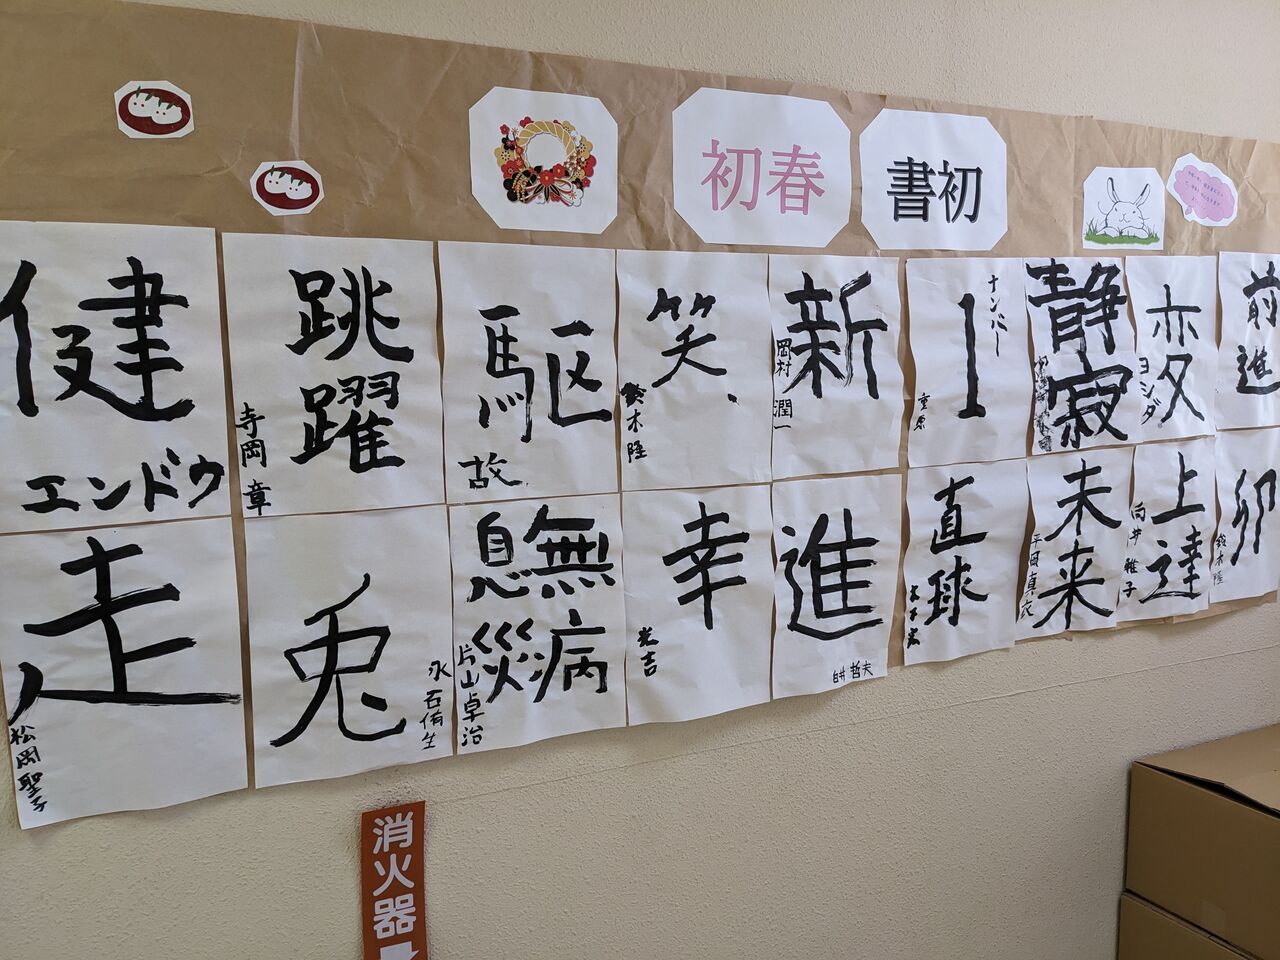 初春
書初
健
エンドウ
跳躍
寺岡章
駆
故
笑
鈴木陸
新
岡村潤一
ナンバー
1
重原
静寂
変
ヨシダ
前進
走
松岡聖子
兎
永石侑生
無病
息災
片山卓治
幸
光吉
進
白井哲夫
直球
未来
平岡真衣
上達
向井雅子
卯
鈴木陸
消火器